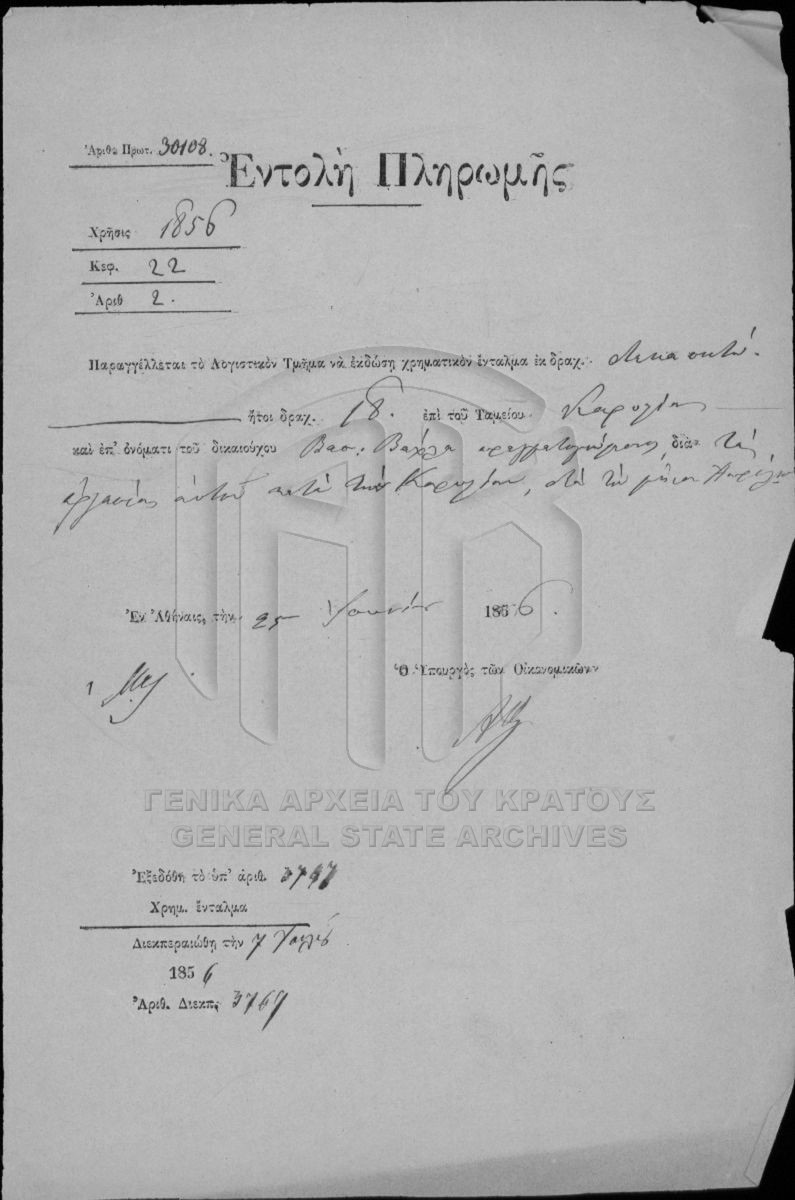 Ἀριθ. Πρωτ. 30108.
Ἐντολὴ Πληρωμῆς
Χρῆσις 1856
Κεφ. 22
Ἀριθ 2.
Παραγγέλλεται τὸ Λογιστικὸν Τμῆμα νὰ ἐκδώσῃ χρηματικὸν ἔνταλμα ἐκ δραχ. δεκα οκτώ.
ἤτοι δραχ. 18. ἐπὶ τοῦ Ταμείου
καὶ ἐπ' ὀνόματι τοῦ δικαιούχου Βασ: διὰ τὰς
ἐργασίας αὐτοῦ κατὰ τὸν μῆνα
Ἐν Ἀθήναις, τὴν 25 Ἰουνίου 1856.
Ὁ Ὑπουργὸς τῶν Οἰκονομικῶν
ΓΕΝΙΚΑ ΑΡΧΕΙΑ ΤΟΥ ΚΡΑΤΟΥΣ
GENERAL STATE ARCHIVES
Ἐξεδόθη τὸ ὑπ' ἀριθ. 3747
Χρημ. ἔνταλμα
Διεκπεραιώθη τὴν 7
1856
Ἀριθ. Διεκπ. 3769